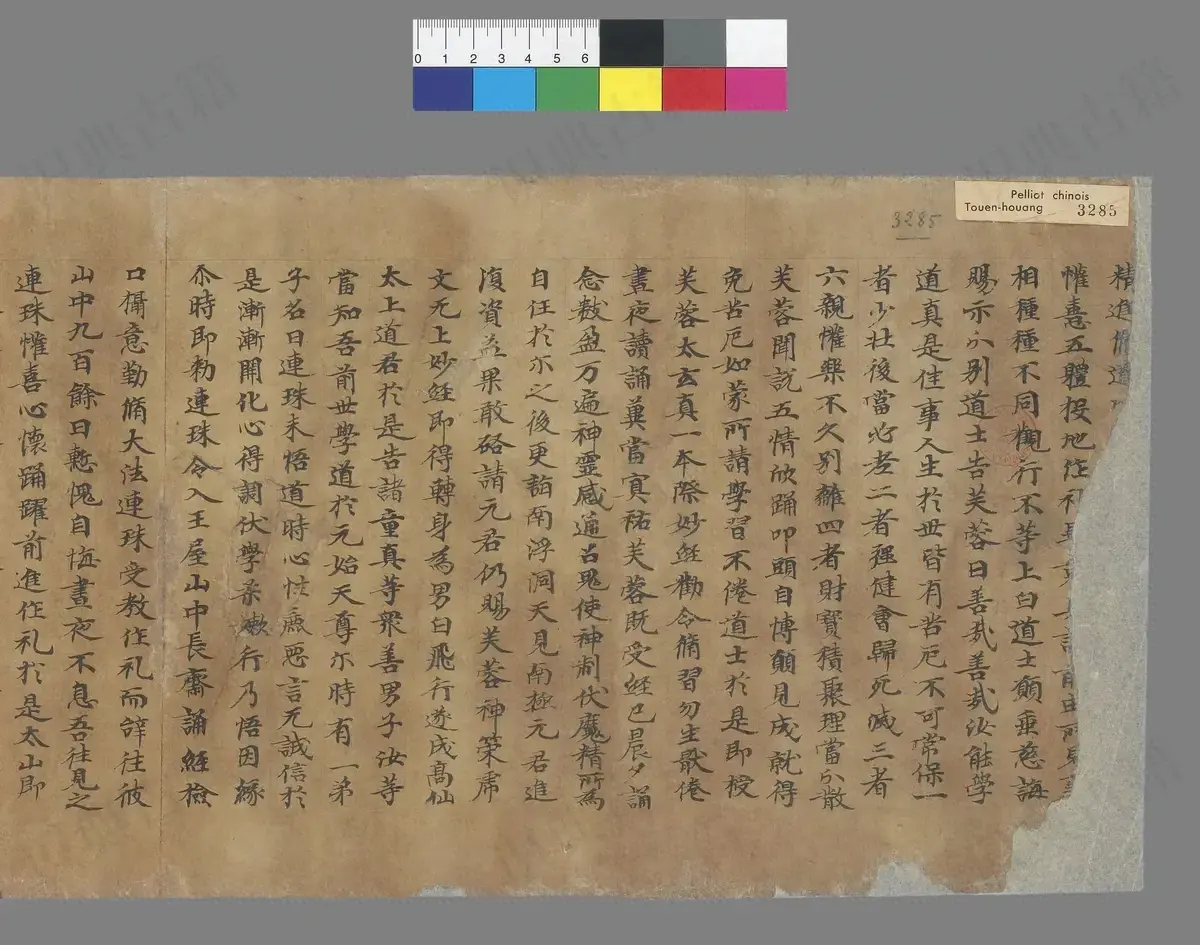 Pelliot chinois
Touen-houang 3285
3285
0 1 2 3 4 5 6
精進脩道
懽憙五體投地作礼
相種種不同觀行不等上白道士願垂慈誨
賜示分别道士告芙蓉曰善㢤善㢤汝能學
道真是佳事人生於世皆有苦厄不可常保一
者少壮後當必老二者强健會歸死滅三者
六親懽樂不久別離四者財寳積聚理當分散
芙蓉聞說五情欣踊叩頭自博願見成就得
免苦厄如蒙所請學習不倦道士於是即授
芙蓉太玄真一本際妙經勸令脩習勿生猒倦
晝夜讀誦蓂當㝠祐芙蓉既受經已晨夕誦
念數盈万遍神靈感通召鬼使神制伏魔精所為
自任於尒之後更詣南浮洞天見南極元君進
澓資益果敢啓請元君仍賜芙蓉神策虎
文无上妙經即得轉身為男白日飛行遂成髙仙
太上道君於是告諸童真等衆善男子汝等
當知吾前世學道於元始天尊尒時有一弟
子名曰連珠未悟道時心性麁惡言无誠信於
是漸漸開化心得調伏學柔嫰行乃悟因緣
尒時即勑連珠令入王屋山中長齋誦經檢
口攝意勤脩大法連珠受教作礼而辞往彼
山中九百餘日慙愧自悔晝夜不息吾往見之
連珠懽喜心懷踊躍前進作礼於是太山即